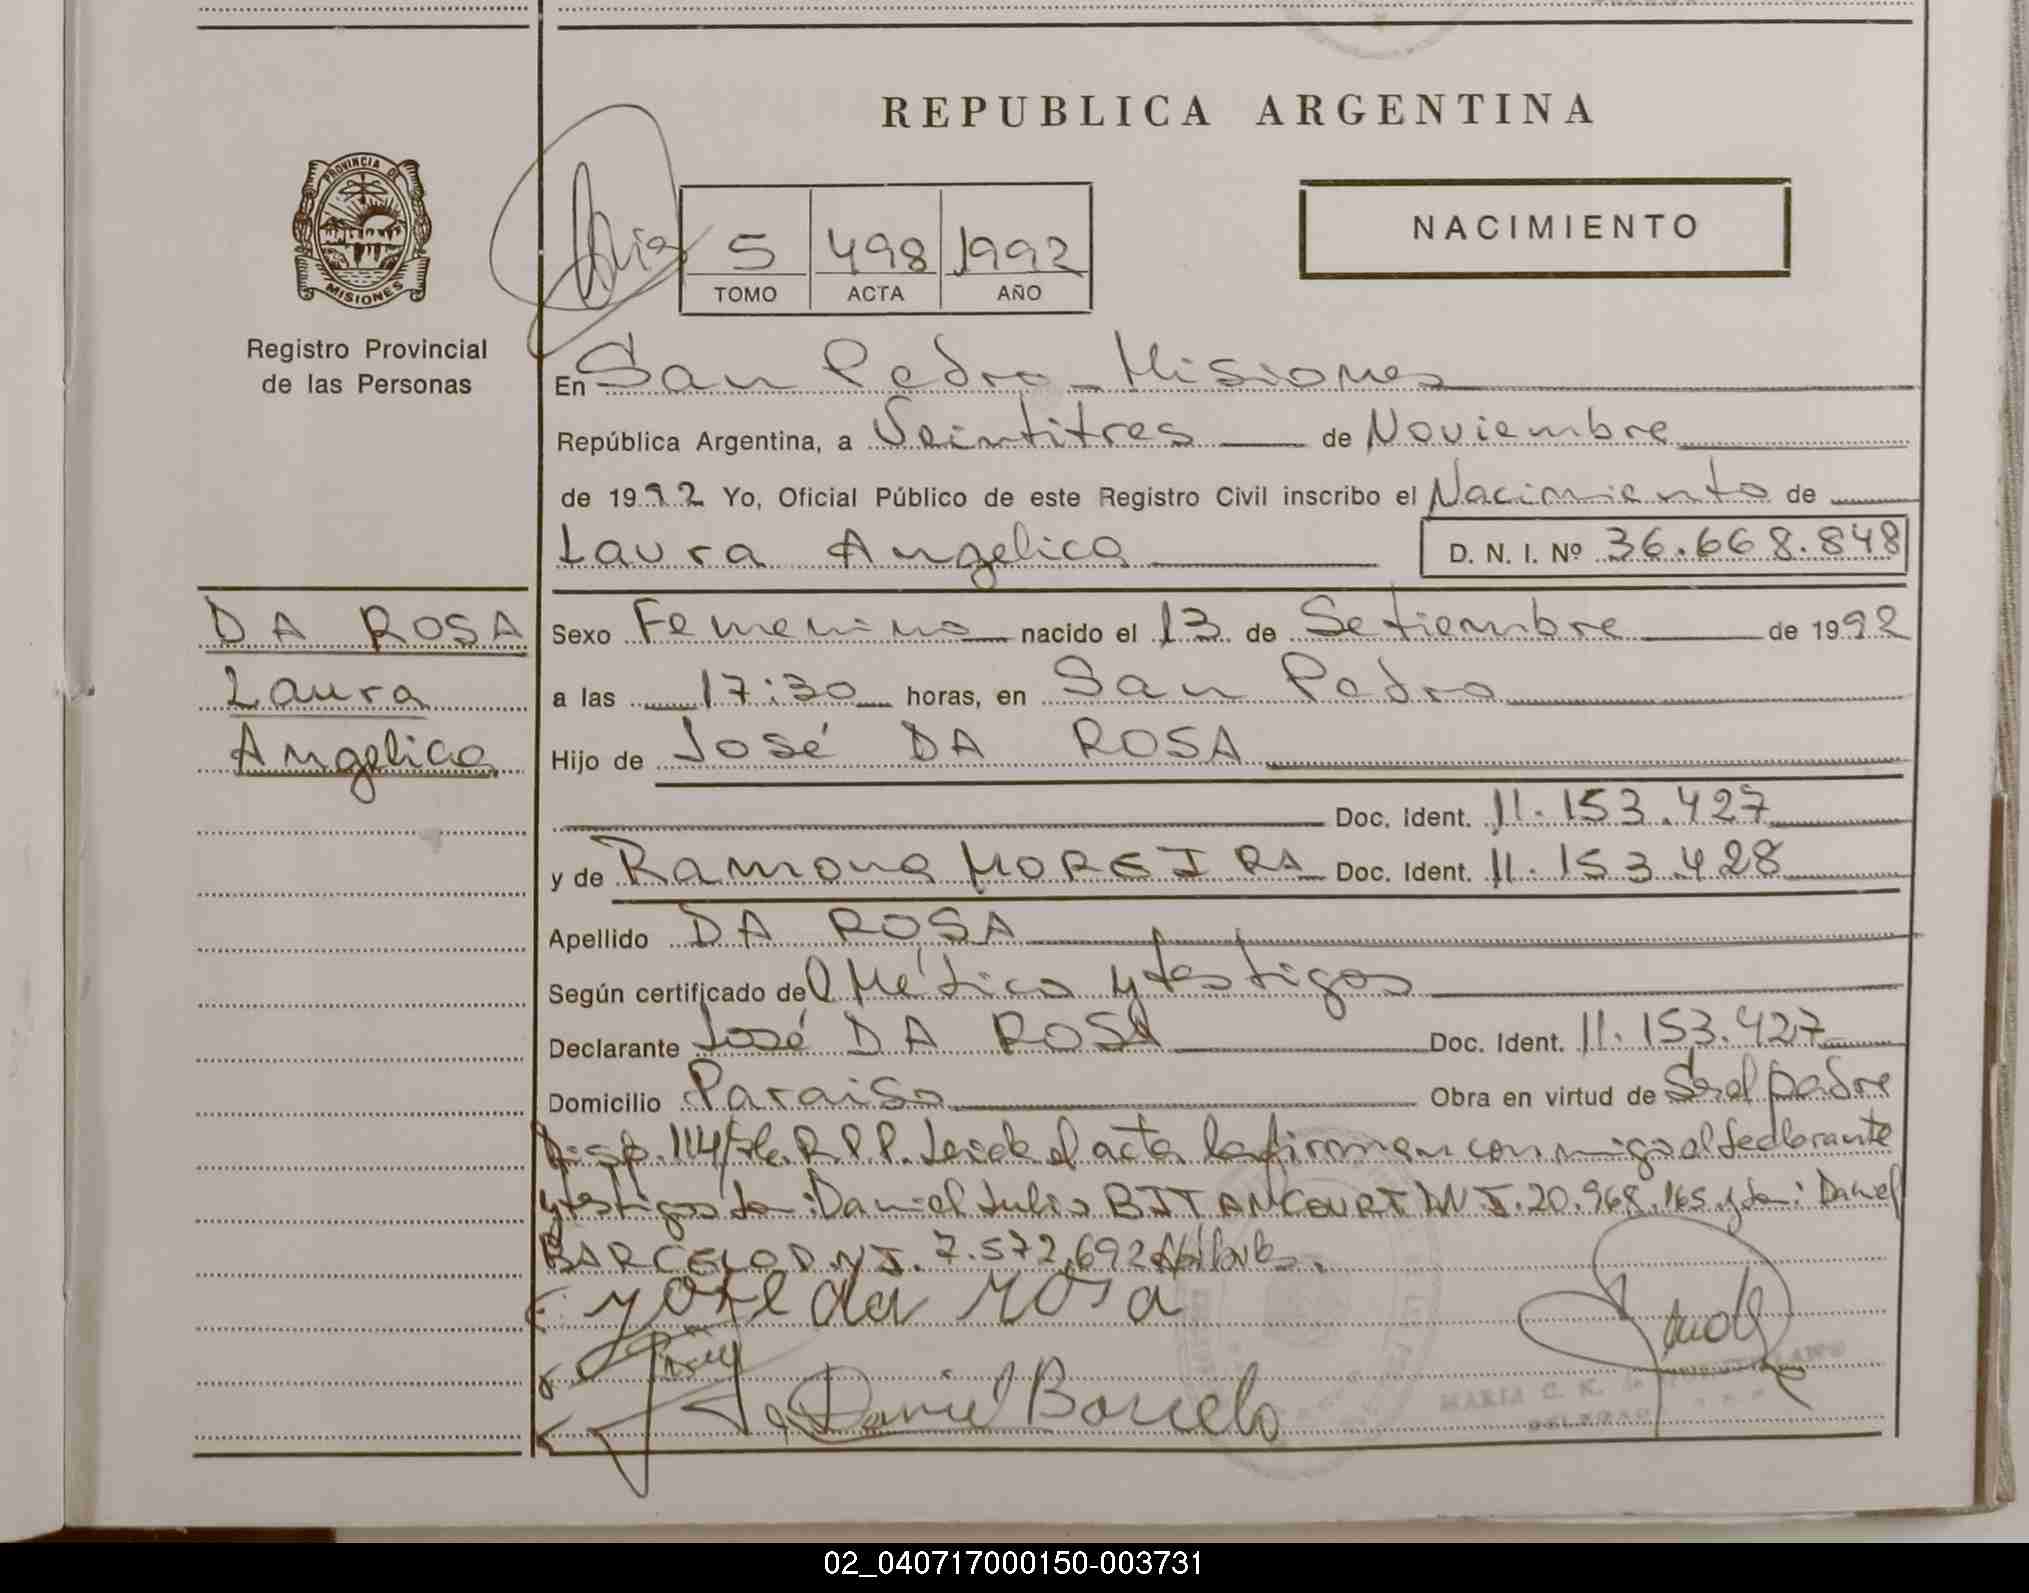 REPUBLICA ARGENTINA
PROVINCIA DE
MISIONES
Registro Provincial
de las Personas
5 498 1992
TOMO ACTA AÑO
NACIMIENTO
En San Pedro - Misiones
República Argentina, a Veintitres de Noviembre
de 1992 Yo, Oficial Público de este Registro Civil inscribo el Nacimiento de
Laura Angelica D. N. I. Nº 36.668.848
DA ROSA
Laura
Angelica
Sexo Femenino nacido el 13 de Setiembre de 1992
a las 17:30 horas, en San Pedro
Hijo de José DA ROSA
Doc. Ident. 11.153.427
y de Ramona MOREIRA Doc. Ident. 11.153.428
Apellido DA ROSA
Según certificado del Médico y testigos
Declarante José DA ROSA Doc. Ident. 11.153.427
Domicilio Paraiso Obra en virtud de Ser el padre
Disp. 114/ R.P.P. Leida el acta la firman conmigo el declarante
y testigos Daniel Julio BITANCOURT DNI. 20.968.165 y Daniel
BARCELO D.NI. 7.572.692
jose da rosa
Daniel Barcelo
MARIA C. K.
02_040717000150-003731